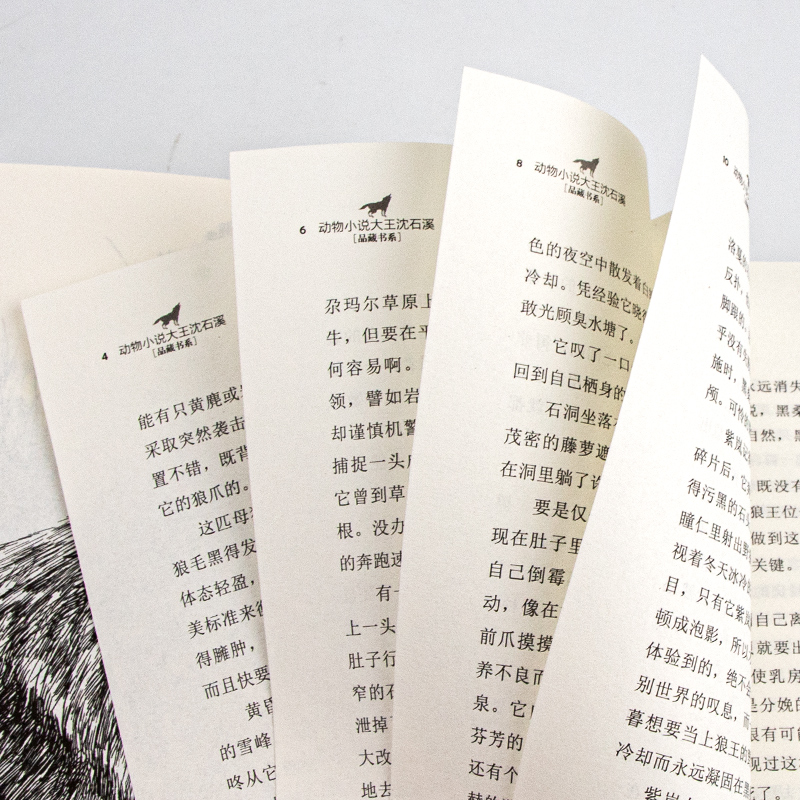 4 动物小说大王沈石溪
[品藏书系]
能有只黄麂或
采取突然袭击
置不错，既背
它的狼爪的。
这匹母
狼毛黑得发
体态轻盈，
美标准来
得臃肿，
而且快要
黄昏
的雪峰
咚从它
6 动物小说大王沈石溪
[品藏书系]
尕玛尔草原上
牛，但要在平
何容易啊。
领，譬如岩
却谨慎机警
捕捉一头
它曾到草
根。没办
的奔跑速
有一
上一头
肚子行
窄的石
泄掉
大改
地去
8 动物小说大王沈石溪
[品藏书系]
色的夜空中散发着白
冷却。凭经验它晓得
敢光顾臭水塘了。
它叹了一口
回到自己栖身的
石洞坐落
茂密的藤萝遮
在洞里躺了许
要是仅
现在肚子里
自己倒霉
动，像在
前爪摸摸
养不良而
泉。它
芬芳的
还有个
10 动物小说
[品藏
反扑，
脚跟的
乎没有
施时，
颅。可怜
紫岚
碎片后，它
得污黑的石
瞳仁里射出
视着冬天冰冷
目，只有它紫岚
顿成泡影，所以
体验到的，绝不
别世界的叹息，而
暮想要当上狼王的
冷却而永远凝固在黑
紫岚
永远消失
说，黑桑
自然，黑
既没有
狼王位
做到这
关键。
自己离
就要出
使乳房
是分娩的
很有可能
见过这
死了。